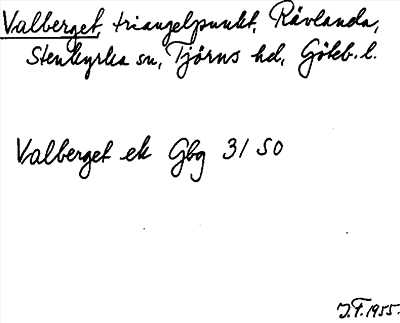 Valberget, triangelpunkt, Rävlanda,
Stenkyrka sn, Tjörns hd, Göteb. l.
Valberget ek Gbg 31 SO
J.F. 1955.